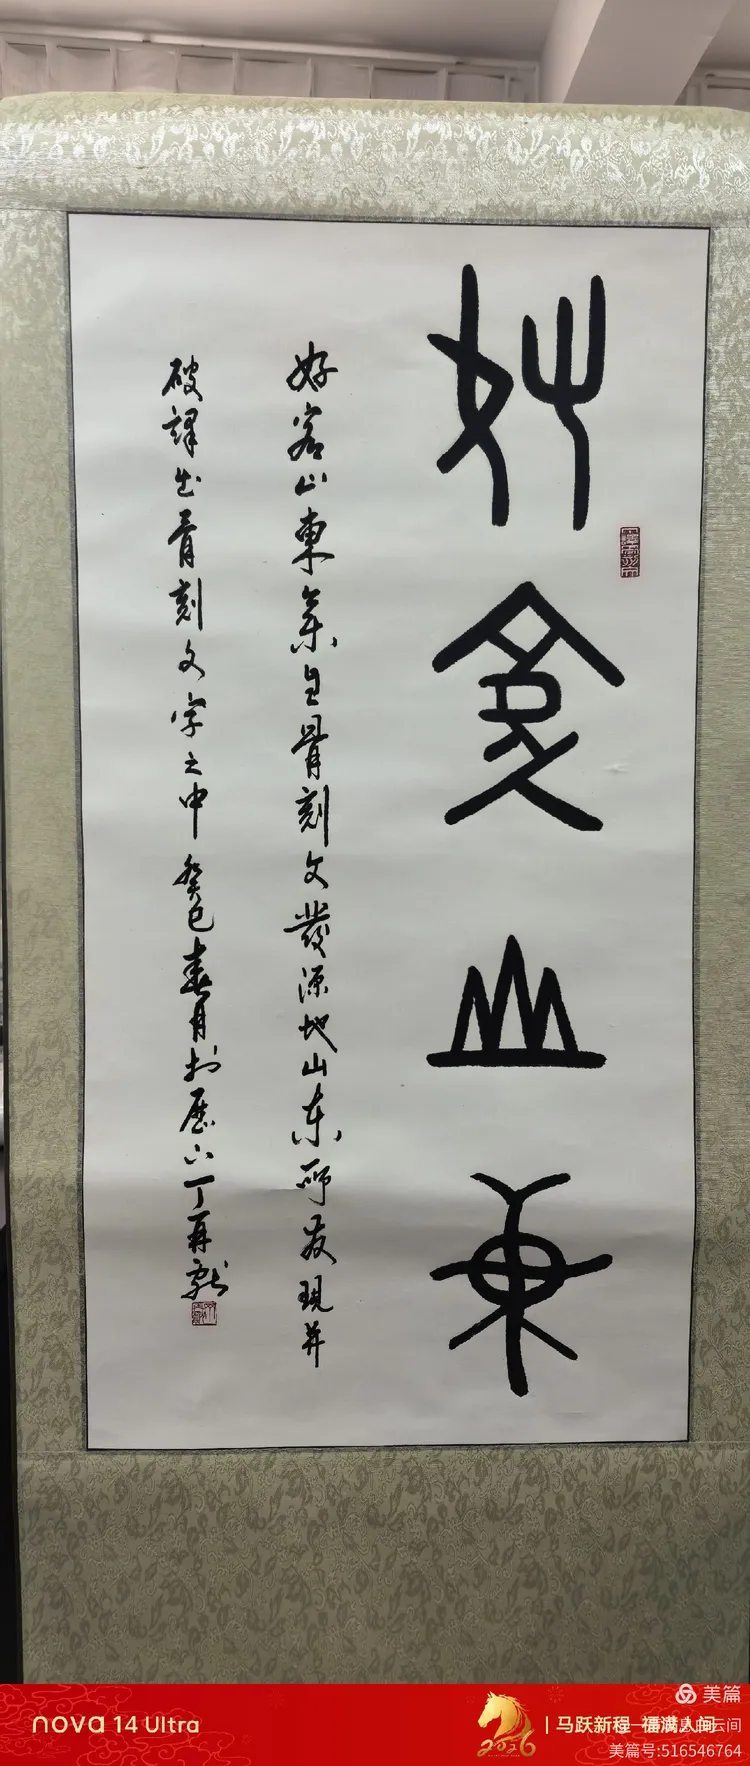 好客山東
好客山東集自骨刻文發源地山东所发現并
破譯出骨刻文字之中癸巳春月於歷下丁再献
nova 14 Ultra
2026
马跃新程 福满人间
美篇
美篇号:516546764